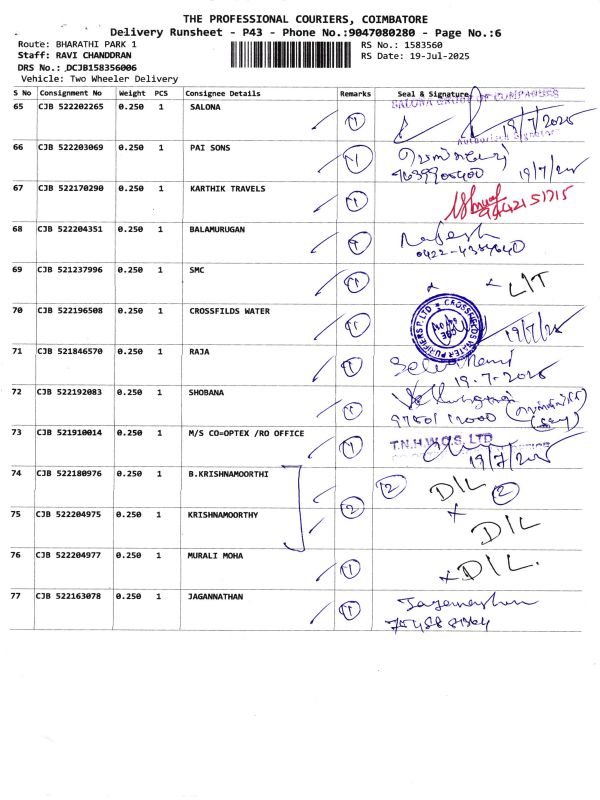 THE PROFESSIONAL COURIERS, COIMBATORE
Delivery Runsheet - P43 - Phone No.:9047080280 - Page No.:6
Route: BHARATHI PARK 1
RS No.: 1583560
Staff: RAVI CHANDDRAN
RS Date: 19-Jul-2025
DRS No.: DCJB158356006
Vehicle: Two Wheeler Delivery
S No Consignment No Weight PCS Consignee Details Remarks Seal & Signature
65 CJB 522202265 0.250 1 SALONA 1 19/7/2025
Authorised Signatory
66 CJB 522203069 0.250 1 PAI SONS 1
19/7/2025
67 CJB 522170290 0.250 1 KARTHIK TRAVELS 1
9442151715
68 CJB 522204351 0.250 1 BALAMURUGAN 1 Rajesh
0422-4384640
69 CJB 521237996 0.250 1 SMC 1 L/T
70 CJB 522196508 0.250 1 CROSSFILDS WATER 1 19/7/25
71 CJB 521846570 0.250 1 RAJA 1
19.7.2025
72 CJB 522192083 0.250 1 SHOBANA 1
73 CJB 521910014 0.250 1 M/S CO=OPTEX /RO OFFICE 1 T.N.H.W.C.S. LTD
19/7/2025
74 CJB 522180976 0.250 1 B.KRISHNAMOORTHI 2 D/L 2
75 CJB 522204975 0.250 1 KRISHNAMOORTHY 2 D/L
76 CJB 522204977 0.250 1 MURALI MOHA 1 D/L.
77 CJB 522163078 0.250 1 JAGANNATHAN 1